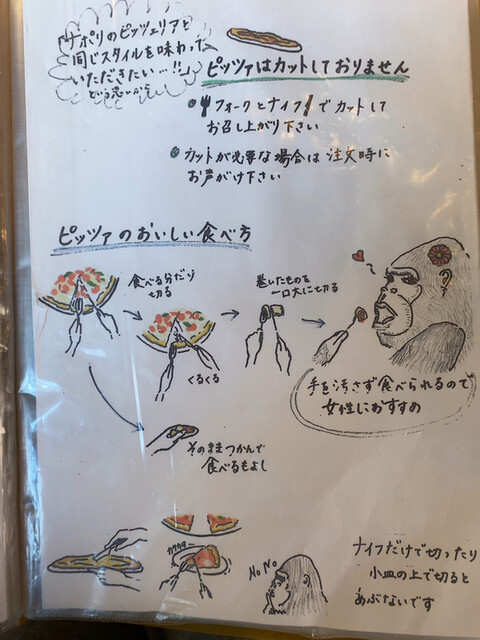 「ナポリのピッツェリアと
同じスタイルを味わって
いただきたい…!!」
という思いから
ピッツァはカットしておりません
フォークとナイフでカットして
お召し上がり下さい
カットが必要な場合は注文時に
お声がけ下さい
ピッツァのおいしい食べ方
食べる分だけ
切る
くるくる
巻いたものを
一口大に切る
手を汚さず食べられるので
女性におすすめ
そのままつかんで
食べるもよし
カタカタ
No No
ナイフだけで切ったり
小皿の上で切ると
あぶないです